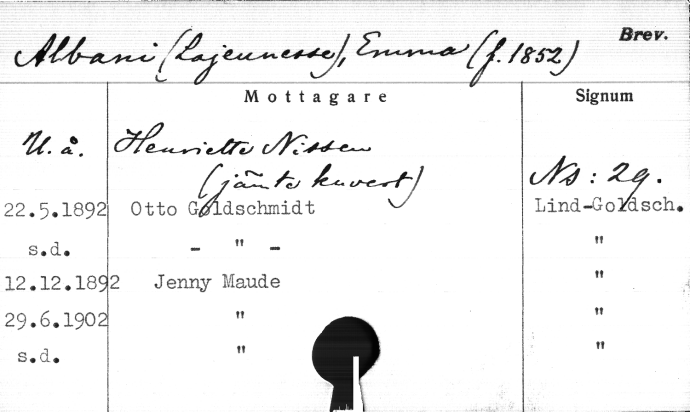 Brev.
Albani (Lajeunesse), Emma (f. 1852)
Mottagare Signum
U. å. Henriette Nissen
(jämte kuvert) Ns: 29.
22.5.1892 Otto Goldschmidt Lind-Goldsch.
s.d. - " - "
12.12.1892 Jenny Maude "
29.6.1902 " "
s.d. " "